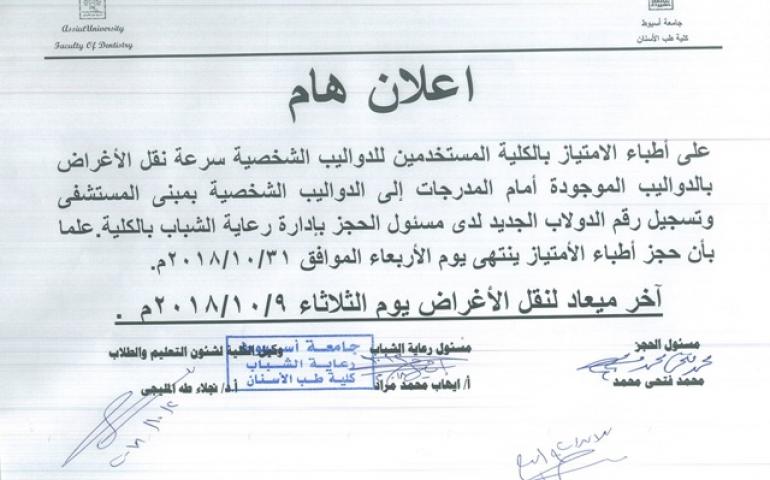 Assiut University
Faculty Of Dentistry
جامعة أسيوط
كلية طب الأسنان
اعلان هام
على أطباء الامتياز بالكلية المستخدمين للدواليب الشخصية سرعة نقل الأغراض
بالدواليب الموجودة أمام المدرجات إلى الدواليب الشخصية بمبنى المستشفى
وتسجيل رقم الدولاب الجديد لدى مسئول الحجز بإدارة رعاية الشباب بالكلية.علما
بأن حجز أطباء الأمتياز ينتهى يوم الأربعاء الموافق ٢٠١٨/١٠/٣١م.
آخر ميعاد لنقل الأغراض يوم الثلاثاء ٢٠١٨/١٠/٩م .
مسئول الحجز
مسئول رعاية الشباب
وكيل الكلية لشئون التعليم والطلاب
جامعة أسيوط
رعاية الشباب
كلية طب الأسنان
محمد فتحى محمد
أ/ ايهاب محمد مراد
أ.د/ نجلاء طه المليجى